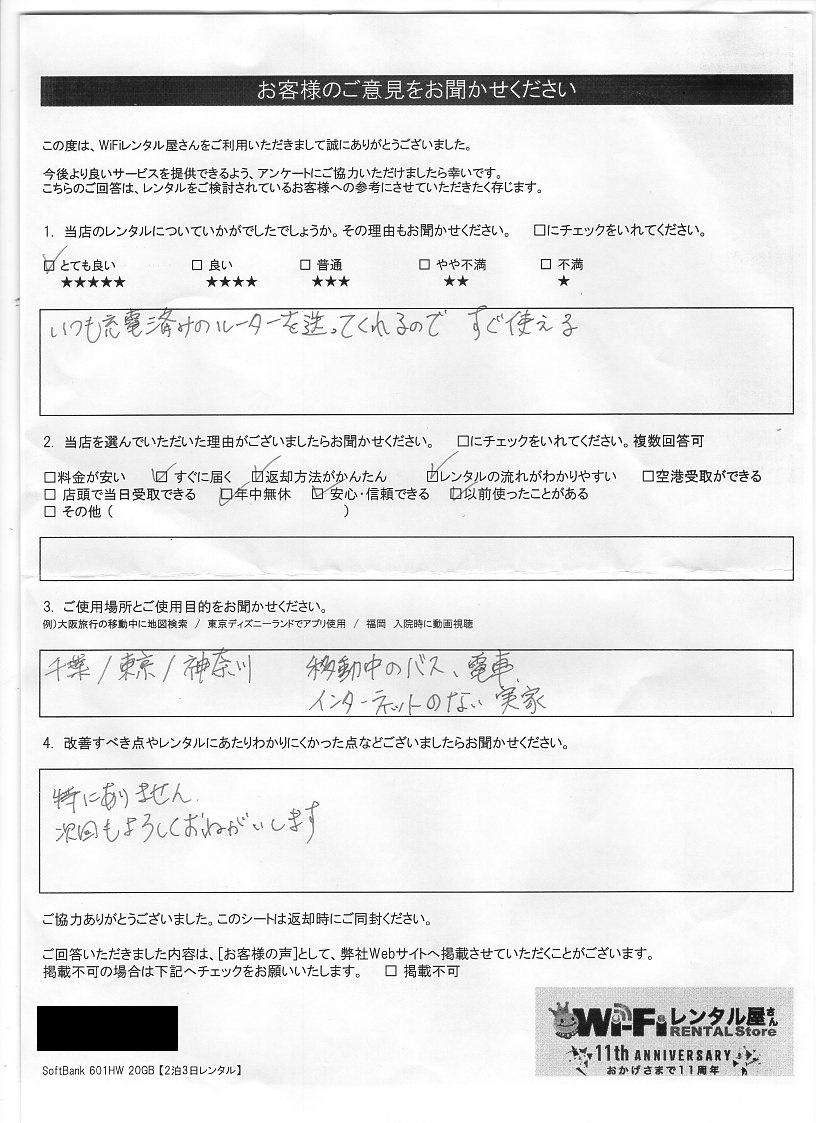 お客様のご意見をお聞かせください
この度は、WiFiレンタル屋さんをご利用いただきまして誠にありがとうございました。
今後より良いサービスを提供できるよう、アンケートにご協力いただけましたら幸いです。
こちらのご回答は、レンタルをご検討されているお客様への参考にさせていただきたく存じます。
1. 当店のレンタルについていかがでしたでしょうか。その理由もお聞かせください。 □にチェックをいれてください。
☑ とても良い □ 良い □ 普通 □ やや不満 □ 不満
★★★★★ ★★★★ ★★★ ★★ ★
いつも充電済みのルーターを送ってくれるので すぐ使える
2. 当店を選んでいただいた理由がございましたらお聞かせください。 □にチェックをいれてください。複数回答可
□料金が安い ☑ すぐに届く ☑返却方法がかんたん ☑レンタルの流れがわかりやすい □空港受取ができる
□ 店頭で当日受取できる ☑年中無休 ☑ 安心・信頼できる ☑以前使ったことがある
□ その他 ( )
3. ご使用場所とご使用目的をお聞かせください。
例)大阪旅行の移動中に地図検索 / 東京ディズニーランドでアプリ使用 / 福岡 入院時に動画視聴
千葉/東京/神奈川 移動中のバス、電車、
インターネットのない実家
4. 改善すべき点やレンタルにあたりわかりにくかった点などございましたらお聞かせください。
特にありません.
次回もよろしくおねがいします
ご協力ありがとうございました。このシートは返却時にご同封ください。
ご回答いただきました内容は、[お客様の声]として、弊社Webサイトへ掲載させていただくことがございます。
掲載不可の場合は下記へチェックをお願いいたします。 □ 掲載不可
Wi-Fiレンタル屋さん
RENTAL Store
11th ANNIVERSARY
おかげさまで11周年
SoftBank 601HW 20GB【2泊3日レンタル】